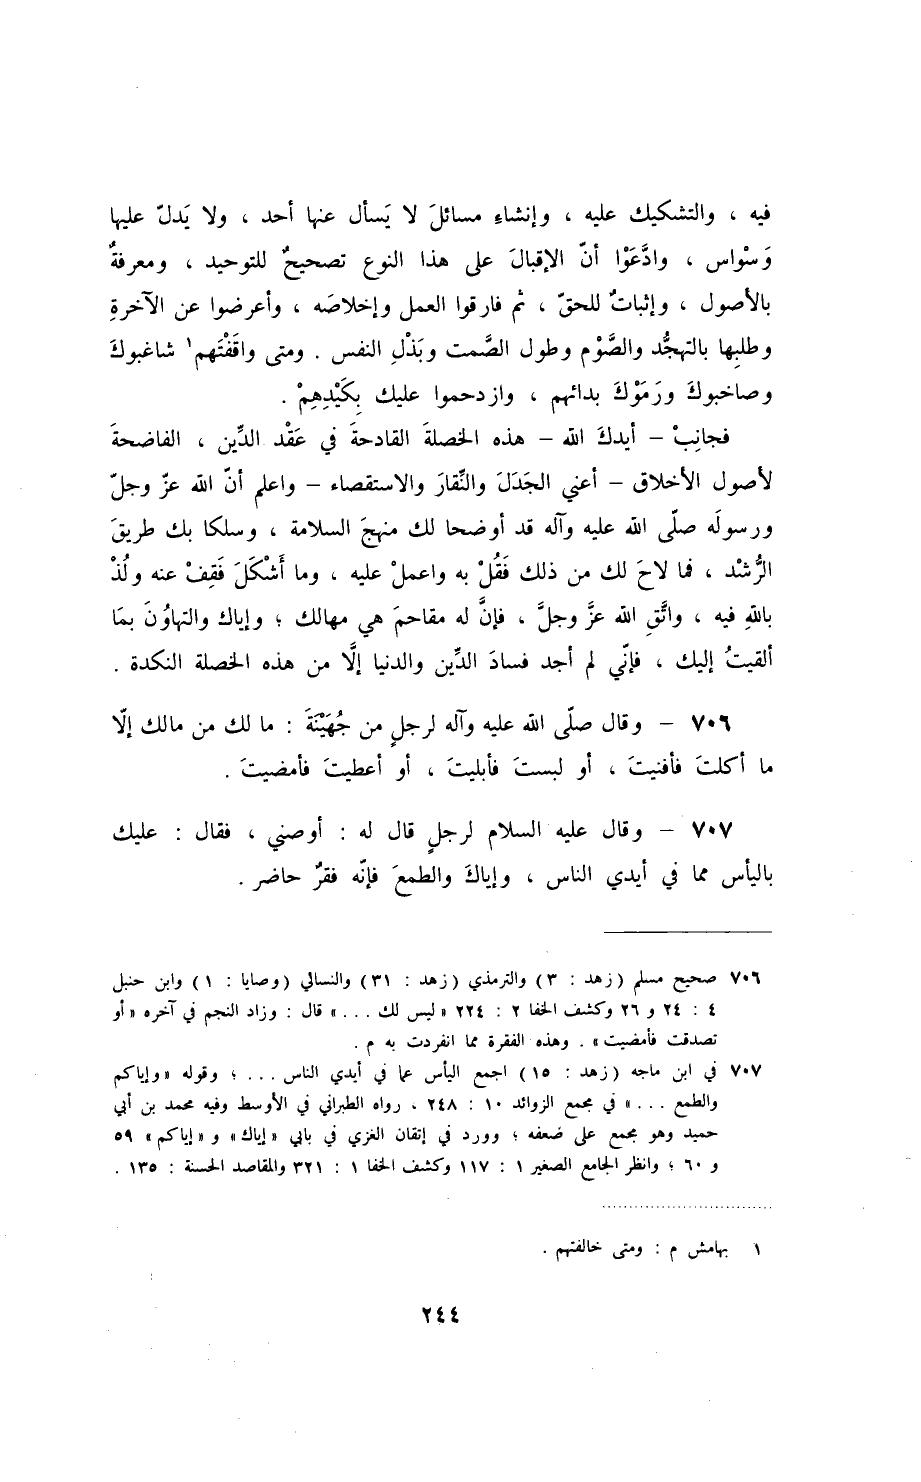 فيه ، والتشكيك عليه ، وإنشاءِ مسائلَ لا يَسأل عنها أحد ، ولا يَدلّ عليها
وَسْواس ، وادَّعَوْا أنّ الإقبالَ على هذا النوع تصحيحٌ للتوحيد ، ومعرفةٌ
بالأصول ، وإثباتٌ للحقّ ، ثم فارقوا العمل وإخلاصَه ، وأعرضوا عن الآخرةِ
وطلبِها بالتهجُّد والصَّوْم وطول الصَّمت وبَذْلِ النفس . ومتى واقَفْتَهم١ شاغبوكَ
وصاخبوكَ ورَمَوْكَ بدائهم ، وازدحموا عليك بِكَيْدِهِمْ .
فجانِبْ – أيدكَ الله – هذه الخصلةَ القادحةَ في عَقْد الدِّين ، الفاضحةَ
لأصول الأخلاق – أعني الجَدَلَ والنِّقارَ والاستقصاء – واعلم أنّ الله عزّ وجلّ
ورسولَه صلّى الله عليه وآله قد أوضحا لك منهجَ السلامة ، وسلكا بك طريقَ
الرُّشْد ، فما لاحَ لك من ذلك فَقُلْ به واعملْ عليه ، وما أَشْكَلَ فَقِفْ عنه ولُذْ
باللهِ فيه ، واتَّقِ الله عزَّ وجلَّ ، فإنَّ له مقاحمَ هي مهالك ؛ وإياك والتهاوُنَ بمَا
ألقيتُ إليك ، فإنّي لم أجد فسادَ الدِّين والدنيا إلَّا من هذه الخصلة النكدة .
٧٠٦ – وقال صلّى الله عليه وآله لرجلٍ من جُهَيْنَةَ : ما لك من مالك إلّا
ما أكلتَ فأفنيتَ ، أو لبستَ فأبليتَ ، أو أعطيتَ فأمضيتَ .
٧٠٧ – وقال عليه السلام لرجلٍ قال له : أوصني ، فقال : عليك
باليأس مما في أيدي الناس ، وإياكَ والطمعَ فإنّه فقرٌ حاضر .
٧٠٦ صحيح مسلم (زهد : ٣) والترمذي (زهد : ٣١) والنسائي (وصايا : ١) وابن حنبل
٤ : ٢٤ و ٢٦ وكشف الخفا ٢ : ٢٢٤ «ليس لك ...» قال : وزاد النجم في آخره «أو
تصدقت فأمضيت» . وهذه الفقرة مما انفردت به م .
٧٠٧ في ابن ماجه (زهد : ١٥) اجمع اليأس عما في أيدي الناس ... ؛ وقوله «وإياكم
والطمع ...» في مجمع الزوائد ١٠ : ٢٤٨ ، رواه الطبراني في الأوسط وفيه محمد بن أبي
حميد وهو مجمع على ضعفه ؛ وورد في إتقان الغزي في بابي «إياك» و «إياكم» ٥٩
و ٦٠ ؛ وانظر الجامع الصغير ١ : ١١٧ وكشف الخفا ١ : ٣٢١ والمقاصد الحسنة : ١٣٥ .
١ بهامش م : ومتى خالفتهم .
٢٤٤